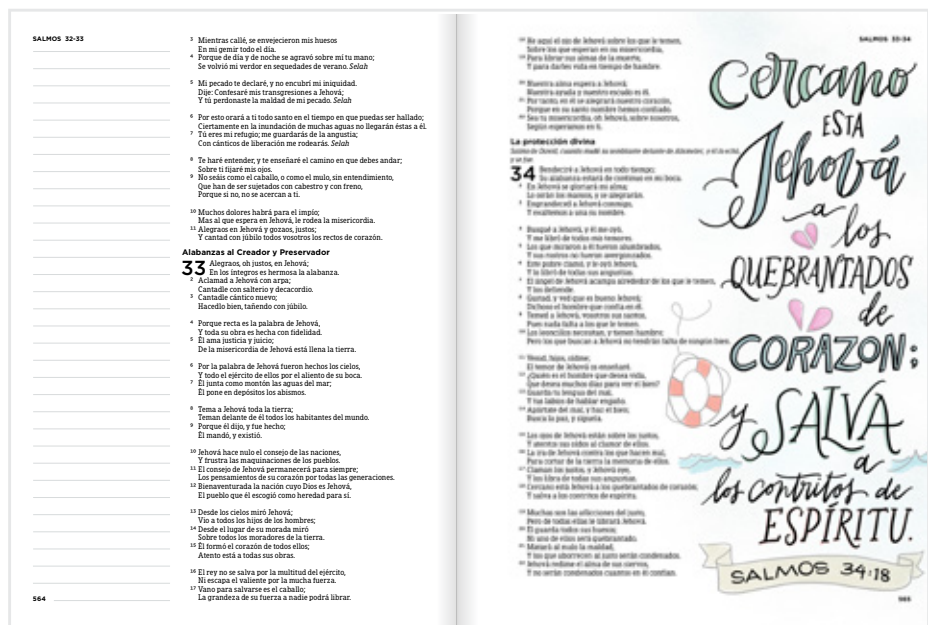 SALMOS 32-33
3 Mientras callé, se envejecieron mis huesos
En mi gemir todo el día.
4 Porque de día y de noche se agravó sobre mí tu mano;
Se volvió mi verdor en sequedades de verano. Selah
5 Mi pecado te declaré, y no encubrí mi iniquidad.
Dije: Confesaré mis transgresiones a Jehová;
Y tú perdonaste la maldad de mi pecado. Selah
6 Por esto orará a ti todo santo en el tiempo en que puedas ser hallado;
Ciertamente en la inundación de muchas aguas no llegarán éstas a él.
7 Tú eres mi refugio; me guardarás de la angustia;
Con cánticos de liberación me rodearás. Selah
8 Te haré entender, y te enseñaré el camino en que debes andar;
Sobre ti fijaré mis ojos.
9 No seáis como el caballo, o como el mulo, sin entendimiento,
Que han de ser sujetados con cabestro y con freno,
Porque si no, no se acercan a ti.
10 Muchos dolores habrá para el impío;
Mas al que espera en Jehová, le rodea la misericordia.
11 Alegraos en Jehová y gozaos, justos;
Y cantad con júbilo todos vosotros los rectos de corazón.
Alabanzas al Creador y Preservador
33 Alegraos, oh justos, en Jehová;
En los íntegros es hermosa la alabanza.
2 Aclamad a Jehová con arpa;
Cantadle con salterio y decacordio.
3 Cantadle cántico nuevo;
Hacedlo bien, tañendo con júbilo.
4 Porque recta es la palabra de Jehová,
Y toda su obra es hecha con fidelidad.
5 Él ama justicia y juicio;
De la misericordia de Jehová está llena la tierra.
6 Por la palabra de Jehová fueron hechos los cielos,
Y todo el ejército de ellos por el aliento de su boca.
7 Él junta como montón las aguas del mar;
Él pone en depósitos los abismos.
8 Tema a Jehová toda la tierra;
Teman delante de él todos los habitantes del mundo.
9 Porque él dijo, y fue hecho;
Él mandó, y existió.
10 Jehová hace nulo el consejo de las naciones,
Y frustra las maquinaciones de los pueblos.
11 El consejo de Jehová permanecerá para siempre;
Los pensamientos de su corazón por todas las generaciones.
12 Bienaventurada la nación cuyo Dios es Jehová,
El pueblo que él escogió como heredad para sí.
13 Desde los cielos miró Jehová;
Vio a todos los hijos de los hombres;
14 Desde el lugar de su morada miró
Sobre todos los moradores de la tierra.
15 Él formó el corazón de todos ellos;
Atento está a todas sus obras.
16 El rey no se salva por la multitud del ejército,
Ni escapa el valiente por la mucha fuerza.
17 Vano para salvarse es el caballo;
La grandeza de su fuerza a nadie podrá librar.
564
SALMOS 33-34
18 He aquí el ojo de Jehová sobre los que le temen,
Sobre los que esperan en su misericordia,
19 Para librar sus almas de la muerte,
Y para darles vida en tiempo de hambre.
20 Nuestra alma espera a Jehová;
Nuestra ayuda y nuestro escudo es él.
21 Por tanto, en él se alegrará nuestro corazón,
Porque en su santo nombre hemos confiado.
22 Sea tu misericordia, oh Jehová, sobre nosotros,
Según esperamos en ti.
La protección divina
Salmo de David, cuando mudó su semblante delante de Abimelec, y él lo echó,
y se fue.
34 Bendeciré a Jehová en todo tiempo;
Su alabanza estará de continuo en mi boca.
2 En Jehová se gloriará mi alma;
Lo oirán los mansos, y se alegrarán.
3 Engrandeced a Jehová conmigo,
Y exaltemos a una su nombre.
4 Busqué a Jehová, y él me oyó,
Y me libró de todos mis temores.
5 Los que miraron a él fueron alumbrados,
Y sus rostros no fueron avergonzados.
6 Este pobre clamó, y le oyó Jehová,
Y lo libró de todas sus angustias.
7 El ángel de Jehová acampa alrededor de los que le temen,
Y los defiende.
8 Gustad, y ved que es bueno Jehová;
Dichoso el hombre que confía en él.
9 Temed a Jehová, vosotros sus santos,
Pues nada falta a los que le temen.
10 Los leoncillos necesitan, y tienen hambre;
Pero los que buscan a Jehová no tendrán falta de ningún bien.
11 Venid, hijos, oídme;
El temor de Jehová os enseñaré.
12 ¿Quién es el hombre que desea vida,
Que desea muchos días para ver el bien?
13 Guarda tu lengua del mal,
Y tus labios de hablar engaño.
14 Apártate del mal, y haz el bien;
Busca la paz, y síguela.
15 Los ojos de Jehová están sobre los justos,
Y atentos sus oídos al clamor de ellos.
16 La ira de Jehová contra los que hacen mal,
Para cortar de la tierra la memoria de ellos.
17 Claman los justos, y Jehová oye,
Y los libra de todas sus angustias.
18 Cercano está Jehová a los quebrantados de corazón;
Y salva a los contritos de espíritu.
19 Muchas son las aflicciones del justo,
Pero de todas ellas le librará Jehová.
20 Él guarda todos sus huesos;
Ni uno de ellos será quebrantado.
21 Matará al malo la maldad,
Y los que aborrecen al justo serán condenados.
22 Jehová redime el alma de sus siervos,
Y no serán condenados cuantos en él confían.
cercano
ESTA
Jehová
a
los
QUEBRANTADOS
de
CORAZON:
y SALVA
a
los contritos de
ESPÍRITU.
SALMOS 34:18
565